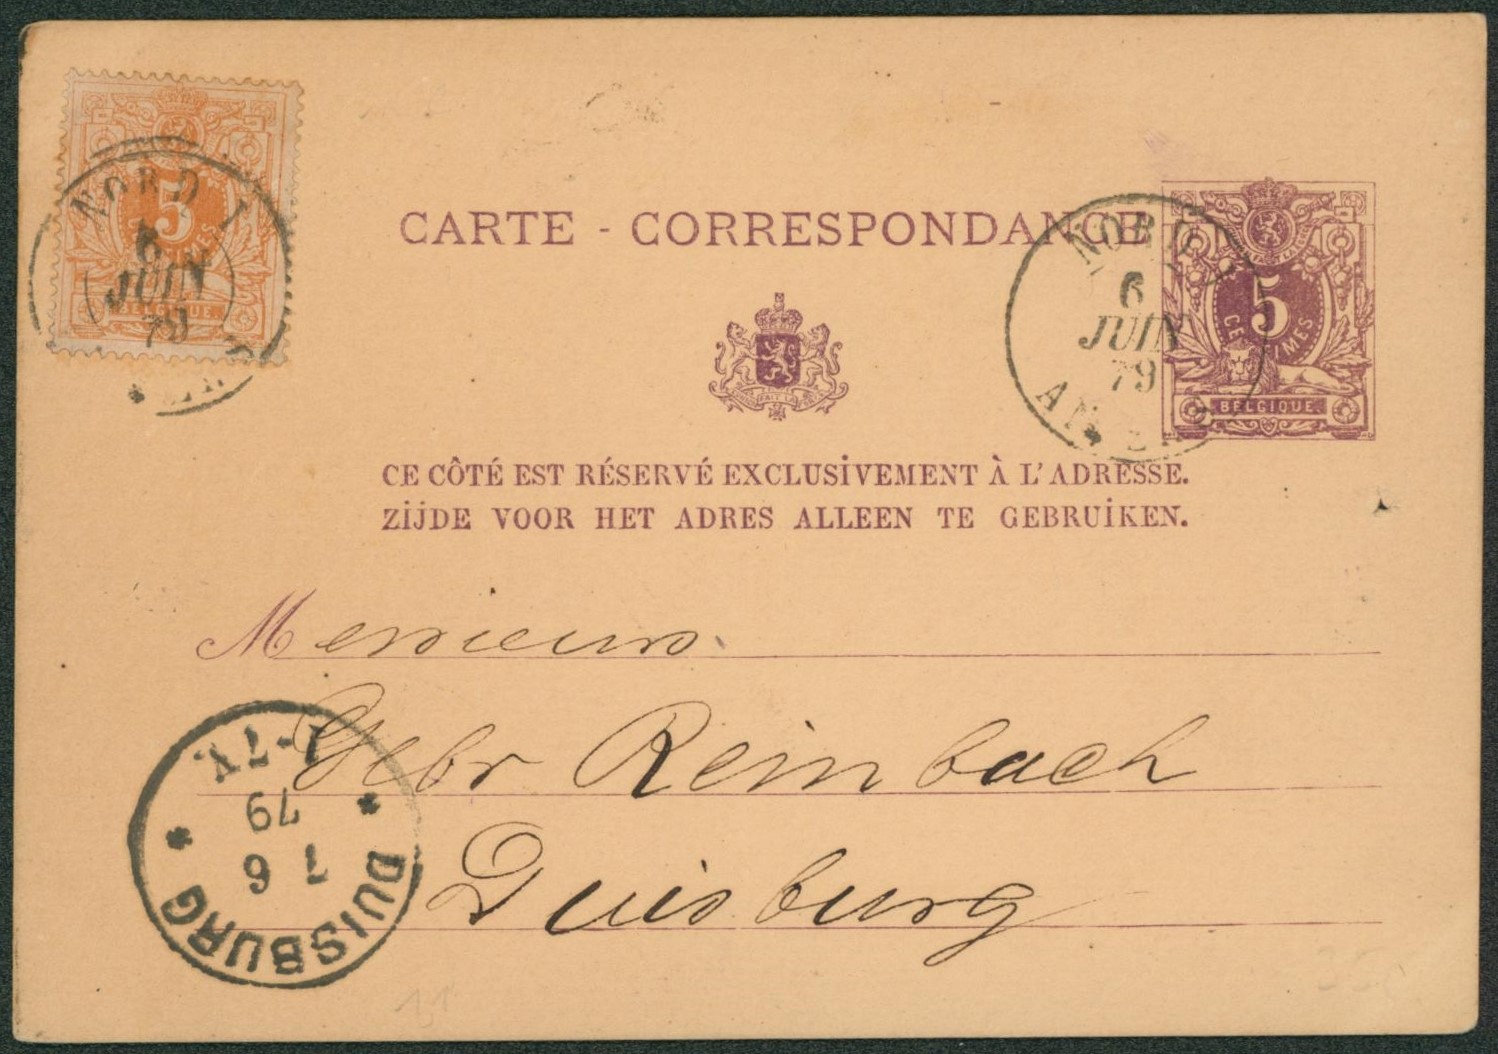 NORD 1
6
JUIN
79
5
CENTIMES
BELGIQUE.
CARTE - CORRESPONDANCE
NORD 1
6
JUIN
79
5
CENTIMES
BELGIQUE
CE CÔTÉ EST RÉSERVÉ EXCLUSIVEMENT À L'ADRESSE.
ZIJDE VOOR HET ADRES ALLEEN TE GEBRUIKEN.
Messieurs
Gebr Reinbach
Duisburg
DUISBURG
79